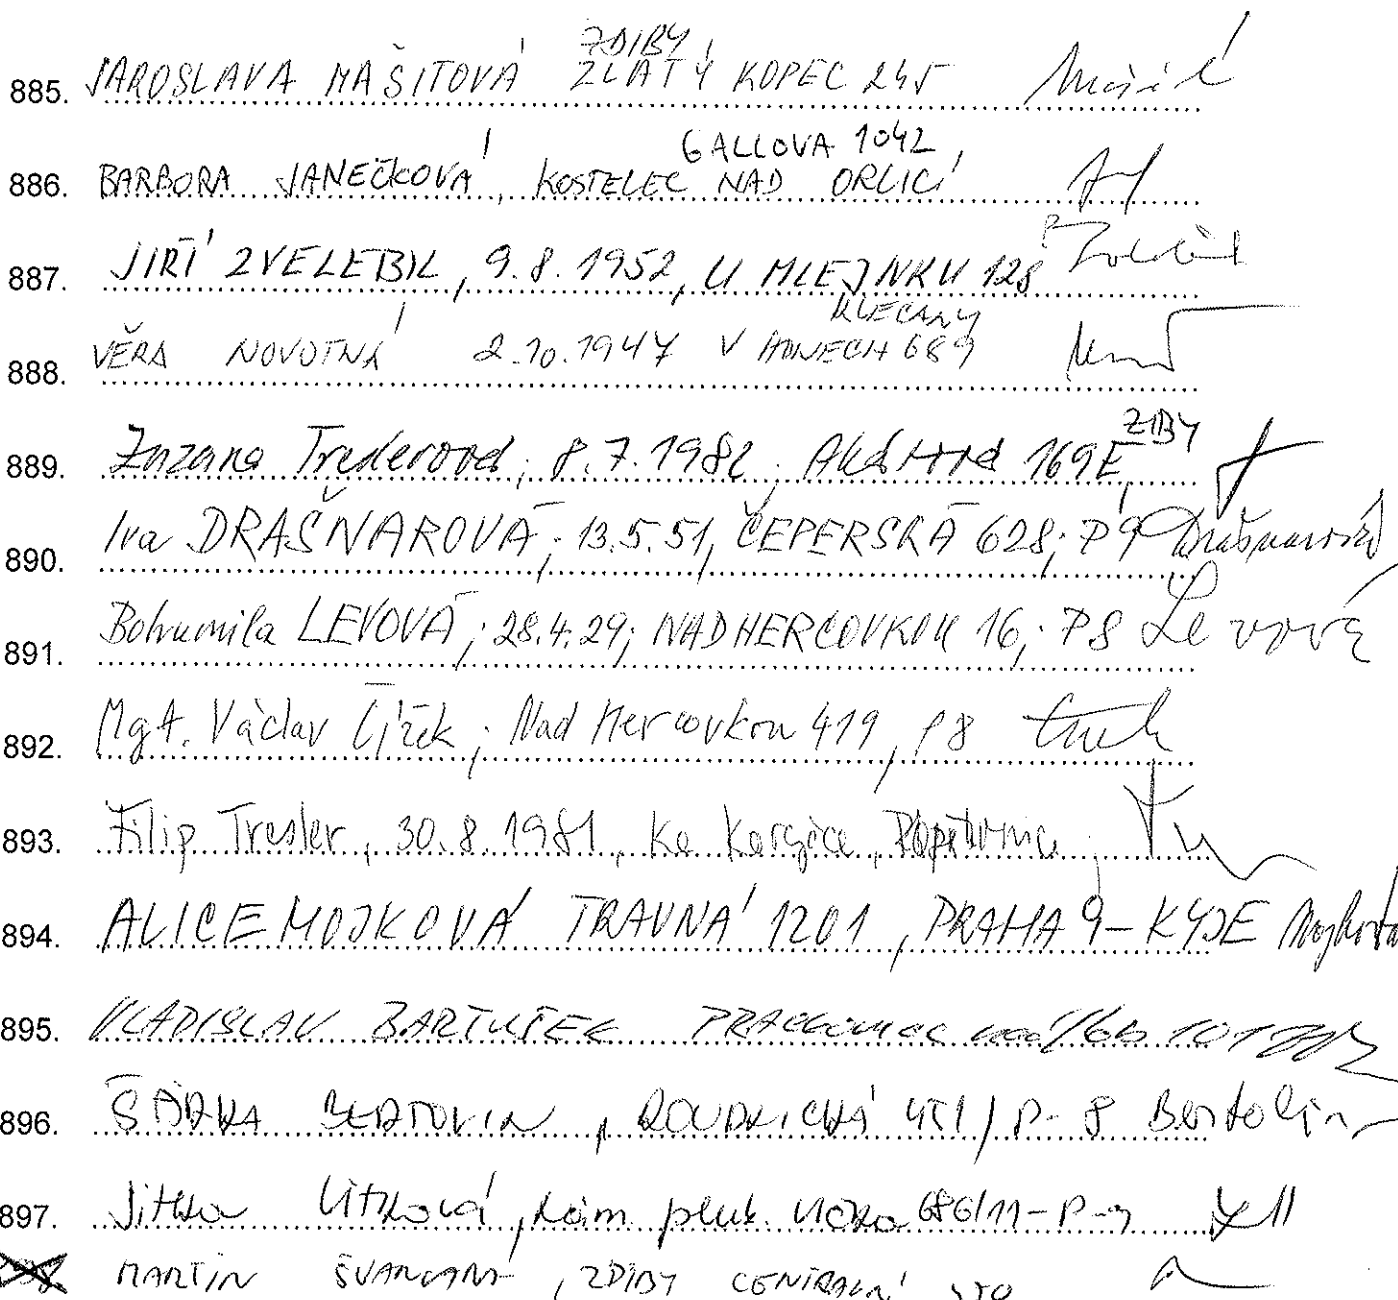 885. JAROSLAVA MAŠITOVÁ ZDIBY, ZLATÝ KOPEC 245
886. BARBORA JANEČKOVÁ, GALLOVA 1042, KOSTELEC NAD ORLICÍ
887. JIŘÍ ZVELEBIL, 9.8.1952, U MLEJNKU 128
888. VĚRA NOVOTNÁ 2.10.1947 V HONECH 689 KLECANY
889. Zuzana 8.7.1982, 169E ZIBY
890. Iva DRAŠNAROVÁ; 13.5.51, ČEPERSKÁ 628; P9 Drašnarová
891. Bohumila LEVOVÁ; 28.4.29; NAD HERCOVKOU 16; P8 Levová
892. Mgr. Václav Čížek; Nad Hercovkou 419, P8
893. Filip Tresler, 30.8.1981, Ke
894. ALICE MOJKOVÁ TRAVNÁ 1201, PRAHA 9 - KYJE Mojková
895. VLADISLAV BARTUŠEK
896. ŠÁRKA, ROUDNICKÁ 451/P-8
897. Jitka Vítková, nám pluk. 686/11-P-9
MARTIN, ZDIBY CENTRALNÍ